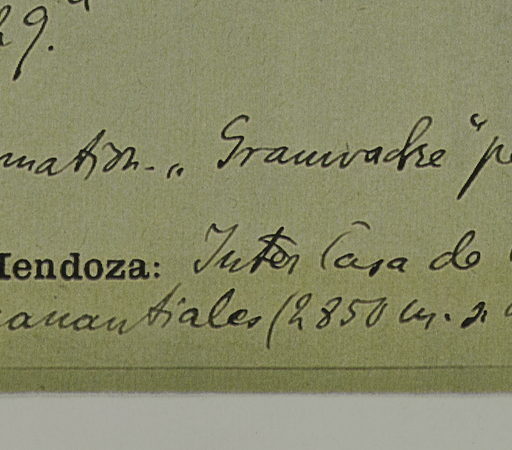 h 9."
mation - „Grauwacke" pe
Mendoza: Inter Casa de
anantiales (2850 m. s.